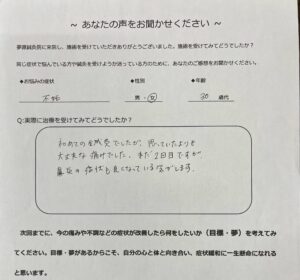 ~ あなたの声をお聞かせください ~
夢源鍼灸院に来院し、施術を受けていただきありがとうございました。施術を受けてみてどうでしたか？
同じ症状で悩んでいる方や鍼灸を受けようか迷っている方のために、あなたのご感想をお聞かせください。
◆お悩みの症状 ◆性別 ◆年齢
不妊 男・女 30 歳代
Q:実際に治療を受けてみてどうでしたか？
初めての鍼灸でしたが、思っていたよりも
大丈夫な痛みでした。まだ2日目ですが
の症状も良くなっている気がします。
次回までに、今の痛みや不調などの症状が改善したら何をしたいか（目標・夢）を考えてみ
てください。目標・夢があるからこそ、自分の心と体と向き合い、症状緩和に一生懸命になれる
と思います。